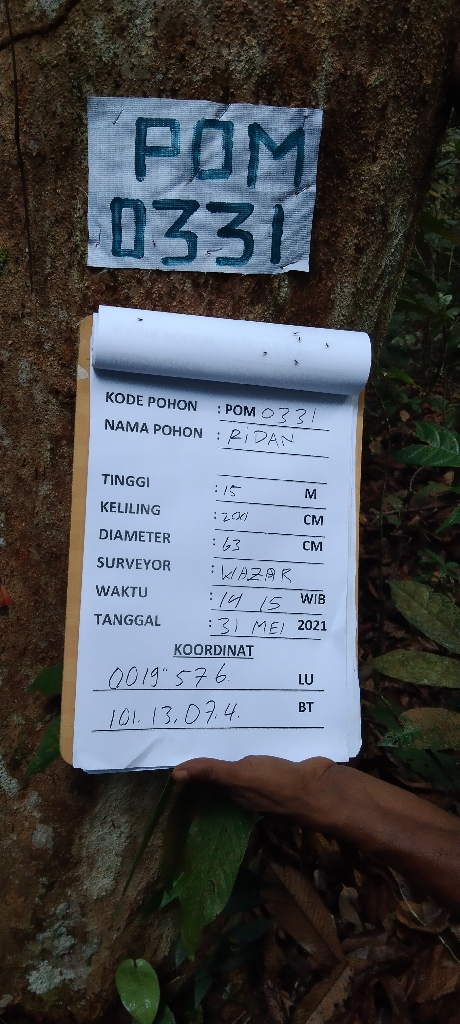 POM
0331
KODE POHON : POM 0331
NAMA POHON : RiDAN
TINGGI : 15 M
KELILING : 200 CM
DIAMETER : 63 CM
SURVEYOR : WAZAR
WAKTU : 14 15 WIB
TANGGAL : 31 MEI 2021
KOORDINAT
0019" 576. LU
101. 13. 07. 4. BT